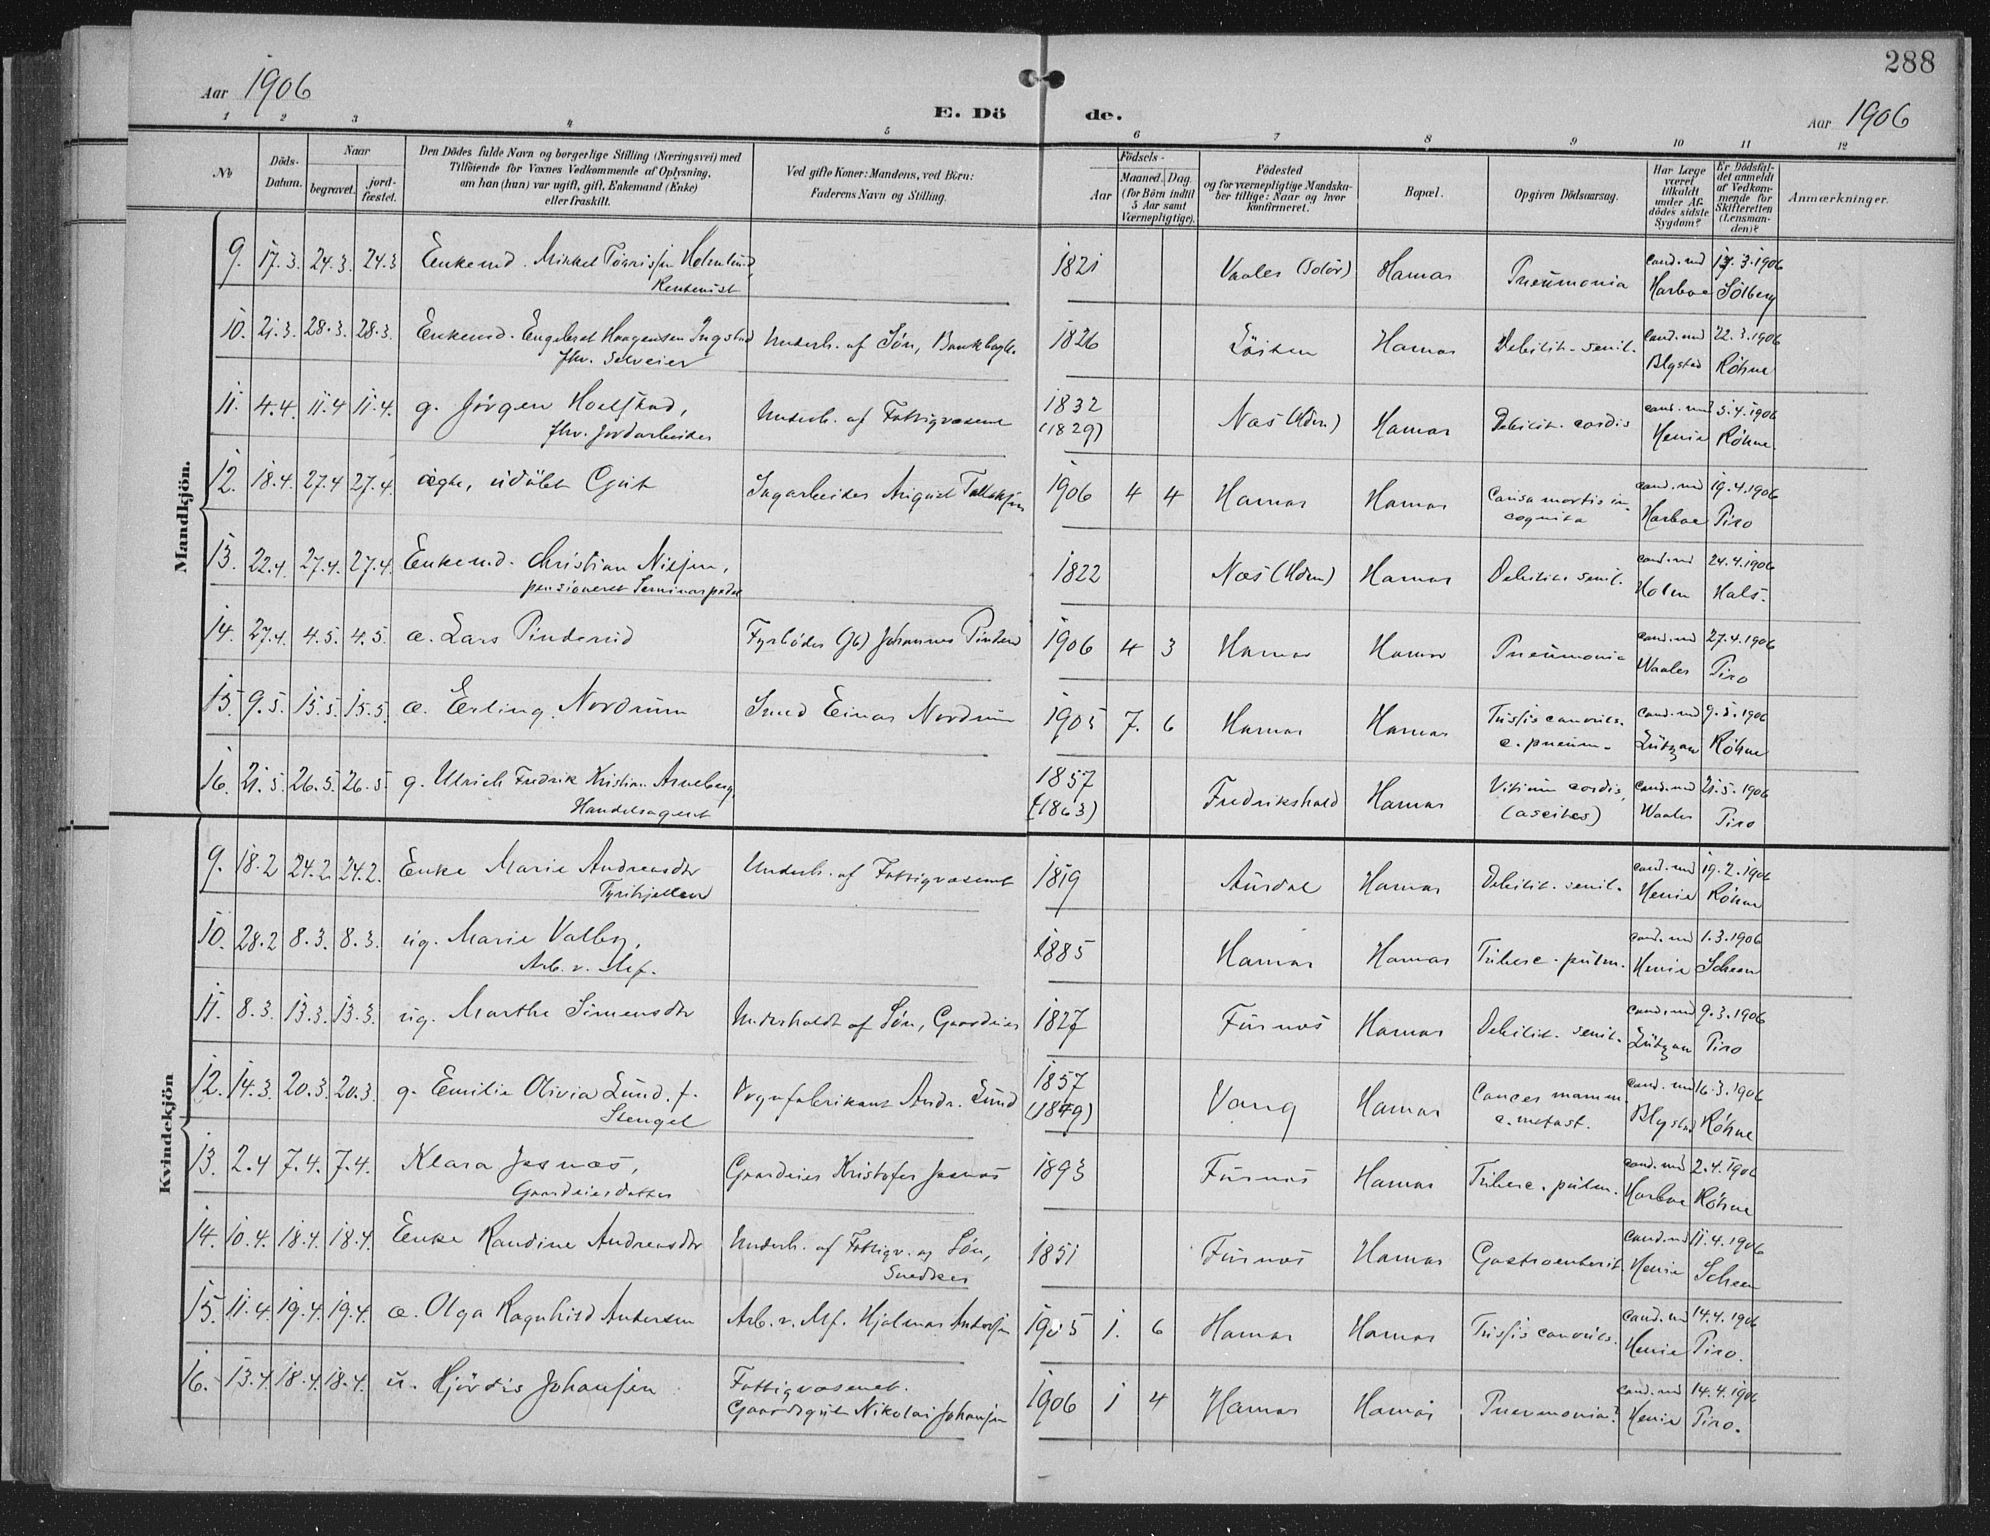 288
Aar 1906
E. Dö de.
Aar 1906
1 2 3 4 5 6 7 8 9 10 11 12
No
Döds-
Datum.
Naar
begravet.
jord-
fæstet.
Den Dödes fulde Navn og borgerlige Stilling (Næringsvei) med
Tilföiende for Voxnes Vedkommende af Oplysning,
om han (hun) var ugift, gift, Enkemand (Enke)
eller fraskilt.
Ved gifte Koner: Mandens, ved Börn:
Faderens Navn og Stilling.
Födsels-
Aar
Maaned. Dag
(for Börn indtil
5 Aar samt
Værnepligtige).
Födested
og for værnepligtige Mandska-
ber tillige: Naar og hvor
konfirmeret.
Bopæl.
Opgiven Dödsaarsag.
Har Læge
været
tilkaldt
under Af-
dödes sidste
Sygdom?
Er Dödsfal-
det anmeldt
af Vedkom-
mende for
Skifteretten
(Lensman-
den)?
Anmærkninger.
Mandkjön.
9. 17.3. 24.3. 24.3 Enkemd. Mikkel Holmlund, 1821 Vaaler (Solör) Hamar Pneumonia cand. med 17.3.1906
Rentenist Harboe Solberg
10. 21.3. 28.3. 28.3. Enkemd. Engebret Haagensen Ingstad Underh. af Søn, 1826 Löiten Hamar Debilit. senil. cand. med 22.3.1906
fhv. Selveier Blystad Röhne
11. 4.4. 11.4 11.4. g. Jörgen Hoelstad, Underh. af Fattigvæsenet 1832 Næs (Hdm.) Hamar Debilit. cordis cand. med 5.4.1906
fhv. Jordarbeider (1829) Henie Röhne
12. 18.4. 27.4 27.4. ægte, udöbt Gut Sagarbeider August 1906 4 4 Hamar Hamar Causa mortis in- cand. med 19.4.1906
cognita Harboe Piro
13. 22.4. 27.4. 27.4. Enkemd. Christian Nilsen, 1822 Næs (Hdm) Hamar Debilit. senil. cand. med 24.4.1906
pensioneret Seminarpedel Holm Hals.
14. 27.4. 4.5. 4.5. æ. Lars Pinderud Fyrböder (Jb) Johannes 1906 4 3 Hamar Hamar Pneumonia cand. med 27.4.1906
Waaler Piro
15. 9.5. 15.5. 15.5. æ. Erling Nordrum Smed Einar Nordrum 1905 7. 6 Hamar Hamar Tussis convuls. cand. med 9.5.1906
c. pneum. Lützow Röhne
16. 21.5. 26.5. 26.5 g. Ulrich Fredrik Kristian Arneberg, 1857 Fredrikshald Hamar Vitium cordis, cand. med 21.5.1906
Handelsagent (1863) (ascites) Waaler Piro
Kvindekjön
9. 18.2 24.2. 24.2. Enke Marie Andreasdtr Underh. af Fattigvæsenet 1819 Aurdal Hamar Debilit. senil. cand. med 19.2.1906
Henie Röhne
10. 28.2 8.3. 8.3. ug. Marie Valby, 1885 Hamar Hamar Tuberc. pulm. cand. med 1.3.1906
Arb. v. Mf. Henie Scheen
11. 8.3. 13.3. 13.3. ug. Marthe Simensdtr Underholdt af Søn, Gaardeier 1827 Furnæs Hamar Debilit. senil. cand. med 9.3.1906
Lützow Piro
12. 14.3. 20.3. 20.3. g. Emilie Olivia Lund. f. Vognfabrikant Andr. Lund 1857 Vang Hamar Cancer mamm. cand. med 16.3.1906
Stengel (1849) c. metast. Blystad Röhne
13. 2.4 7.4. 7.4. Klara Jesnæs, Gaardeier Kristofer Jesnæs 1893 Furnæs Hamar Tuberc. pulm. cand. med 2.4.1906
Gaardeierdatter Harboe Röhne
14. 10.4. 18.4. 18.4. Enke Randine Andreasdtr Underh. af Fattigv. og Søn, 1851 Furnæs Hamar Gastroenterit. cand. med 11.4.1906
Snedker Henie Scheen
15. 11.4. 19.4. 19.4. æ. Olga Ragnhild Andersen Arb. v. Mf. Hjalmar Andersen 1905 1. 6 Hamar Hamar Tussis convuls. cand. med 14.4.1906
Henie Piro.
16. 13.4. 18.4. 18.4. u. Hjördis Johansen Fattigvæsenet. 1906 1 4 Hamar Hamar Pneumonia? cand. med 14.4.1906
Gaardsgut Nikolai Johansen Henie Piro.